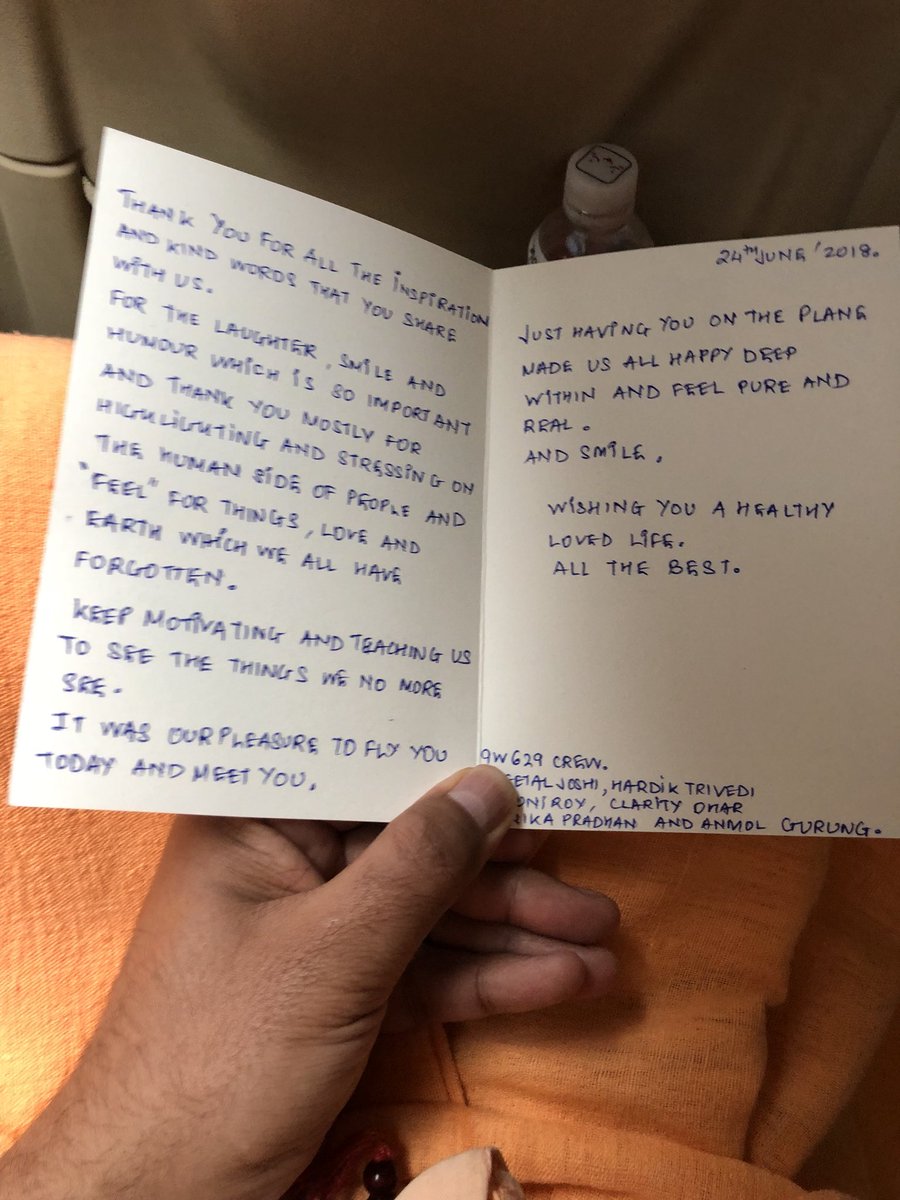 THANK YOU FOR ALL THE INSPIRATION
AND KIND WORDS THAT YOU SHARE
WITH US.
FOR THE LAUGHTER, SMILE AND
HUMOUR WHICH IS SO IMPORTANT
AND THANK YOU MOSTLY FOR
HIGHLIGHTING AND STRESSING ON
THE HUMAN SIDE OF PEOPLE AND
"FEEL" FOR THINGS, LOVE AND
EARTH WHICH WE ALL HAVE
FORGOTTEN.
KEEP MOTIVATING AND TEACHING US
TO SEE THE THINGS WE NO MORE
SEE.
IT WAS OUR PLEASURE TO FLY YOU
TODAY AND MEET YOU.
24TH JUNE '2018.
JUST HAVING YOU ON THE PLANE
MADE US ALL HAPPY DEEP
WITHIN AND FEEL PURE AND
REAL.
AND SMILE.
WISHING YOU A HEALTHY
LOVED LIFE.
ALL THE BEST.
9W 629 CREW.
JOSHI, HARDIK TRIVEDI
ROY, CLARITY OMAR
PRADHAN AND ANMOL GURUNG.